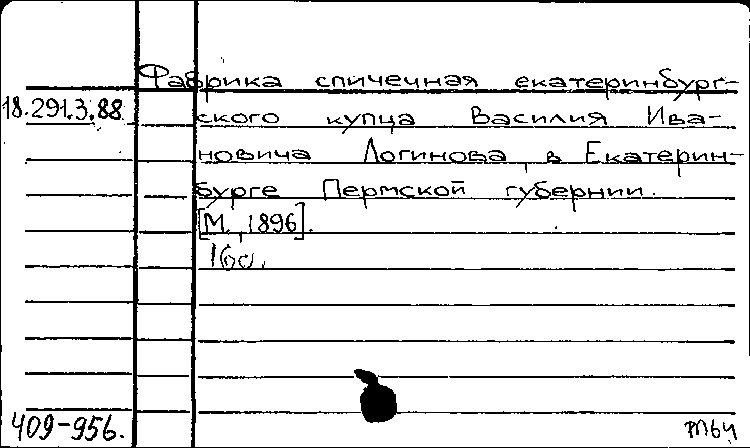 Фабрика спичечная екатеринбург-
18.291.3.88 ского купца Василия Ива-
новича Логинова, в Екатерин-
бурге Пермской губернии.
[М., 1896].
16с.
409-956.